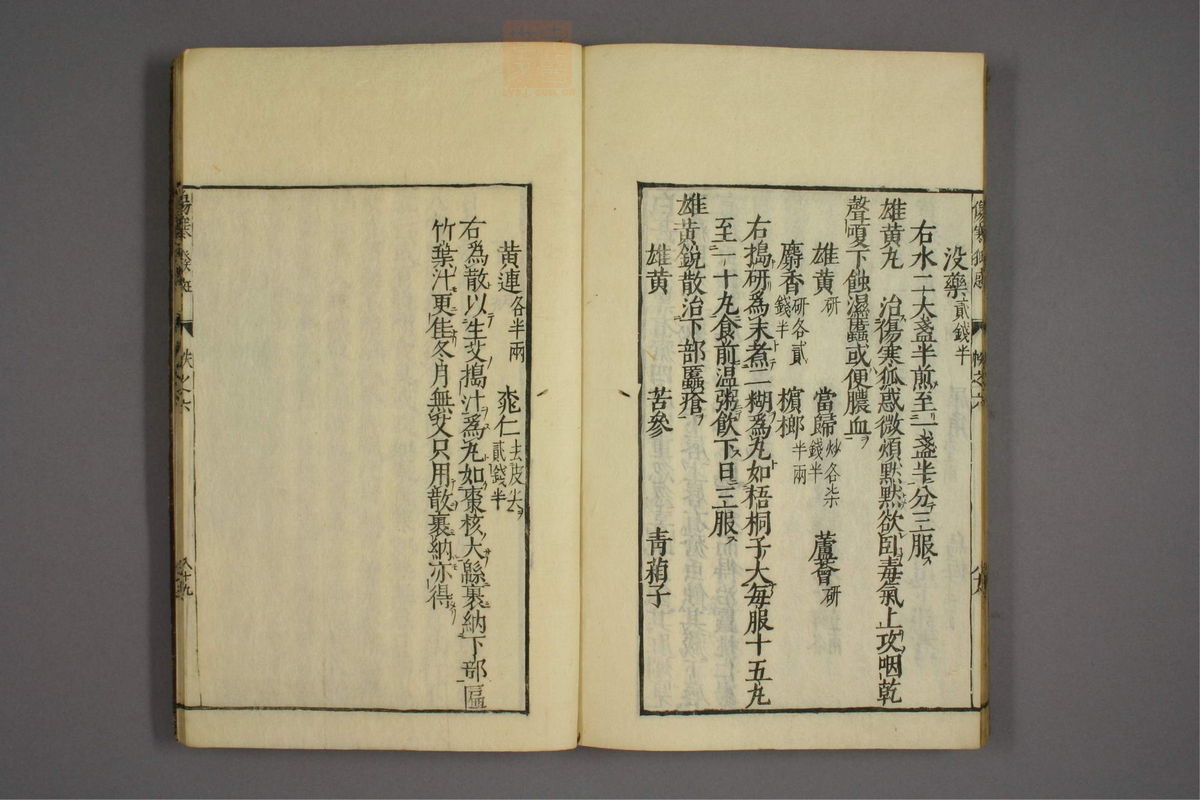 傷寒狐惑
帙之六
没藥貳錢半
右水二大盞半煎至一盞半分三服
雄黄丸 治傷寒狐惑微煩默默欲臥毒氣上攻咽乾
聲嗄下蝕濕䘌或便膿血
雄黄研 當歸炒各柒錢半 蘆薈研
麝香研各貳錢半 檳榔半兩
右搗研爲末煮二糊爲丸如梧桐子大每服十五丸
至一十九食前温粥飲下日三服
雄黄銳散治下部䘌瘡
雄黄 苦參 青葙子
黄連各半兩 桃仁去皮尖貳錢半
右爲散以生艾搗汁爲丸如棗核大緜裹納下部
竹葉汁更佳冬月無艾只用散裹納亦得
傷寒發斑
帙之六
八十九